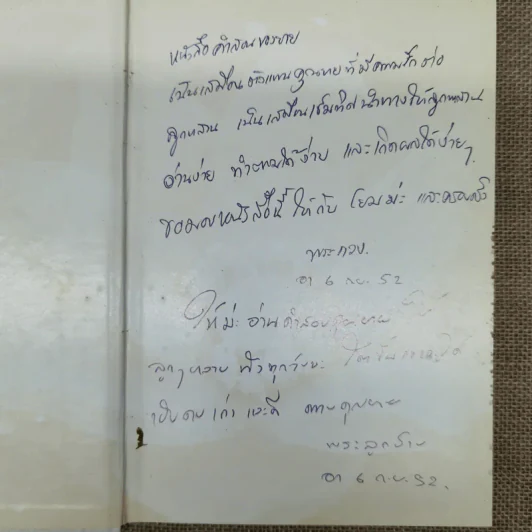 หนังสือคำสอนของยาย
เป็นเสมือนตัวแทนคุณยายที่มีความรักต่อ
ลูกหลาน เป็นเสมือนเข็มทิศนำทางให้ลูกหลาน
อ่านง่าย ทำตามได้ง่าย และเกิดผลได้ง่ายๆ
ขอมอบหนังสือนี้ ให้กับ โยมม่ะ และครอบครัว
พระ
อา 6 ก.ย. 52
ให้ม่ะ อ่านคำสอนคุณยาย ให้
ลูกๆหลาน ฟังทุกวันนะ
เก่า และดี ตามคุณยาย
พระลูกชาย
อา 6 ก.ย. 52.